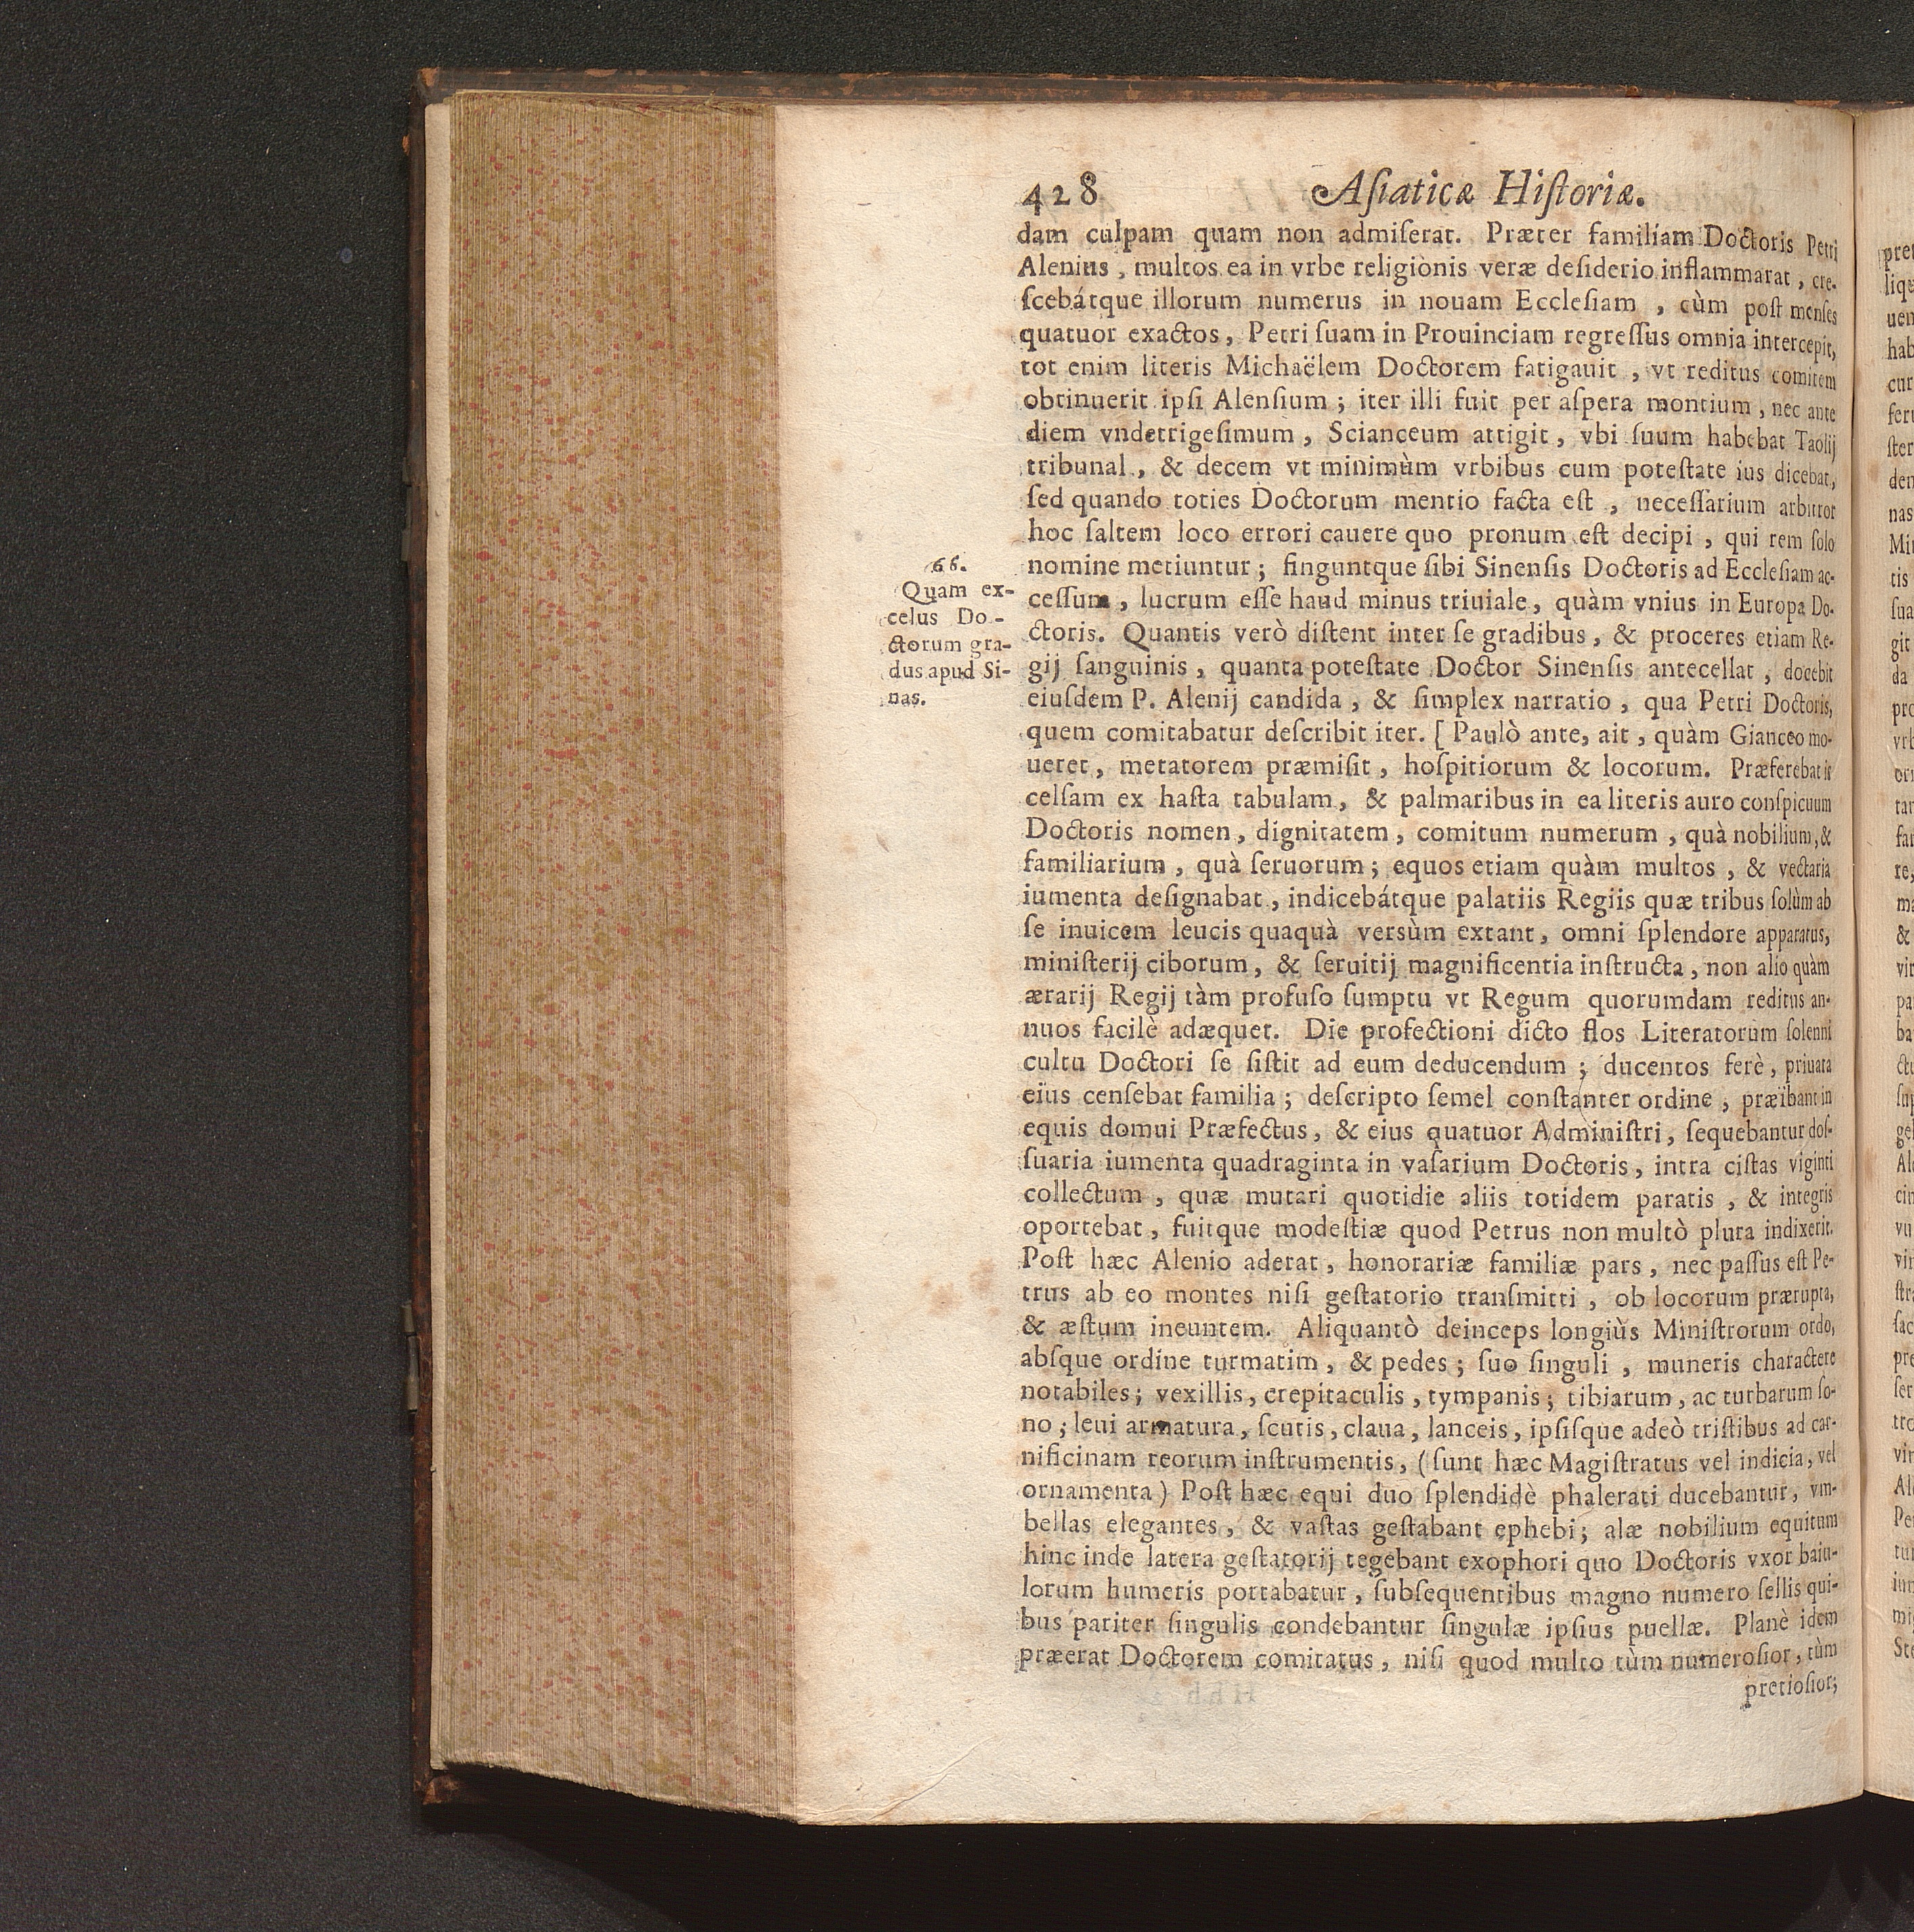 428 Aſiaticæ Hiſtoriæ.
dam culpam quam non admiſerat. Præter familiam Doctoris Petri
Alenius, multos ea in vrbe religionis veræ deſiderio inflammarat, cre-
ſcebátque illorum numerus in nouam Eccleſiam, cùm poſt menſes
quatuor exactos, Petri ſuam in Prouinciam regreſſus omnia intercepit,
tot enim literis Michaëlem Doctorem fatigauit, vt reditus comitem
obtinuerit ipſi Alenſium; iter illi fuit per aſpera montium, nec ante
diem vndetrigeſimum, Scianceum attigit, vbi ſuum habebat Taolij
tribunal, & decem vt minimùm vrbibus cum poteſtate ius dicebat,
ſed quando toties Doctorum mentio facta eſt, neceſſarium arbitror
hoc ſaltem loco errori cauere quo pronum eſt decipi, qui rem ſolo
nomine metiuntur; finguntque ſibi Sinenſis Doctoris ad Eccleſiam ac-
ceſſum, lucrum eſſe haud minus triuiale, quàm vnius in Europa Do-
ctoris. Quantis verò diſtent inter ſe gradibus, & proceres etiam Re-
gij ſanguinis, quanta poteſtate Doctor Sinenſis antecellat, docebit
eiuſdem P. Alenij candida, & ſimplex narratio, qua Petri Doctoris,
quem comitabatur deſcribit iter. [Paulò ante, ait, quàm Gianceo mo-
ueret, metatorem præmiſit, hoſpitiorum & locorum. Præferebat is
celſam ex haſta tabulam, & palmaribus in ea literis auro conſpicuum
Doctoris nomen, dignitatem, comitum numerum, quà nobilium, &
familiarium, quà ſeruorum; equos etiam quàm multos, & vectaria
iumenta deſignabat, indicebátque palatiis Regiis quæ tribus ſolùm ab
ſe inuicem leucis quaquà versùm extant, omni ſplendore apparatus,
miniſterij ciborum, & ſeruitij magnificentia inſtructa, non alio quàm
ærarij Regij tàm profuſo ſumptu vt Regum quorumdam reditus an-
nuos facilè adæquet. Die profectioni dicto flos Literatorum ſolenni
cultu Doctori ſe ſiſtit ad eum deducendum; ducentos ferè, priuata
eius cenſebat familia; deſcripto ſemel conſtanter ordine, præibant in
equis domui Præfectus, & eius quatuor Adminiſtri, ſequebantur doſ-
ſuaria iumenta quadraginta in vaſarium Doctoris, intra ciſtas viginti
collectum, quæ mutari quotidie aliis totidem paratis, & integris
oportebat, fuitque modeſtiæ quod Petrus non multò plura indixerit.
Poſt hæc Alenio aderat, honorariæ familiæ pars, nec paſſus eſt Pe-
trus ab eo montes niſi geſtatorio tranſmitti, ob locorum prærupta,
& æſtum ineuntem. Aliquantò deinceps longiùs Miniſtrorum ordo,
abſque ordine turmatim, & pedes; ſuo ſinguli, muneris charactere
notabiles; vexillis, crepitaculis, tympanis; tibiarum, ac turbarum ſo-
no; leui armatura, ſcutis, claua, lanceis, ipſiſque adeò triſtibus ad car-
nificinam reorum inſtrumentis, (ſunt hæc Magiſtratus vel indicia, vel
ornamenta) Poſt hæc equi duo ſplendidè phalerati ducebantur, vm-
bellas elegantes, & vaſtas geſtabant ephebi; alæ nobilium equitum
hinc inde latera geſtatorij tegebant exophori quo Doctoris vxor baiu-
lorum humeris portabatur, ſubſequentibus magno numero ſellis qui-
bus pariter ſingulis condebantur ſingulæ ipſius puellæ. Planè idem
præerat Doctorem comitatus, niſi quod multo tùm numeroſior, tùm
pretioſior;
66.
Quam ex-
celus Do-
ctorum gra-
dus apud Si-
nas.